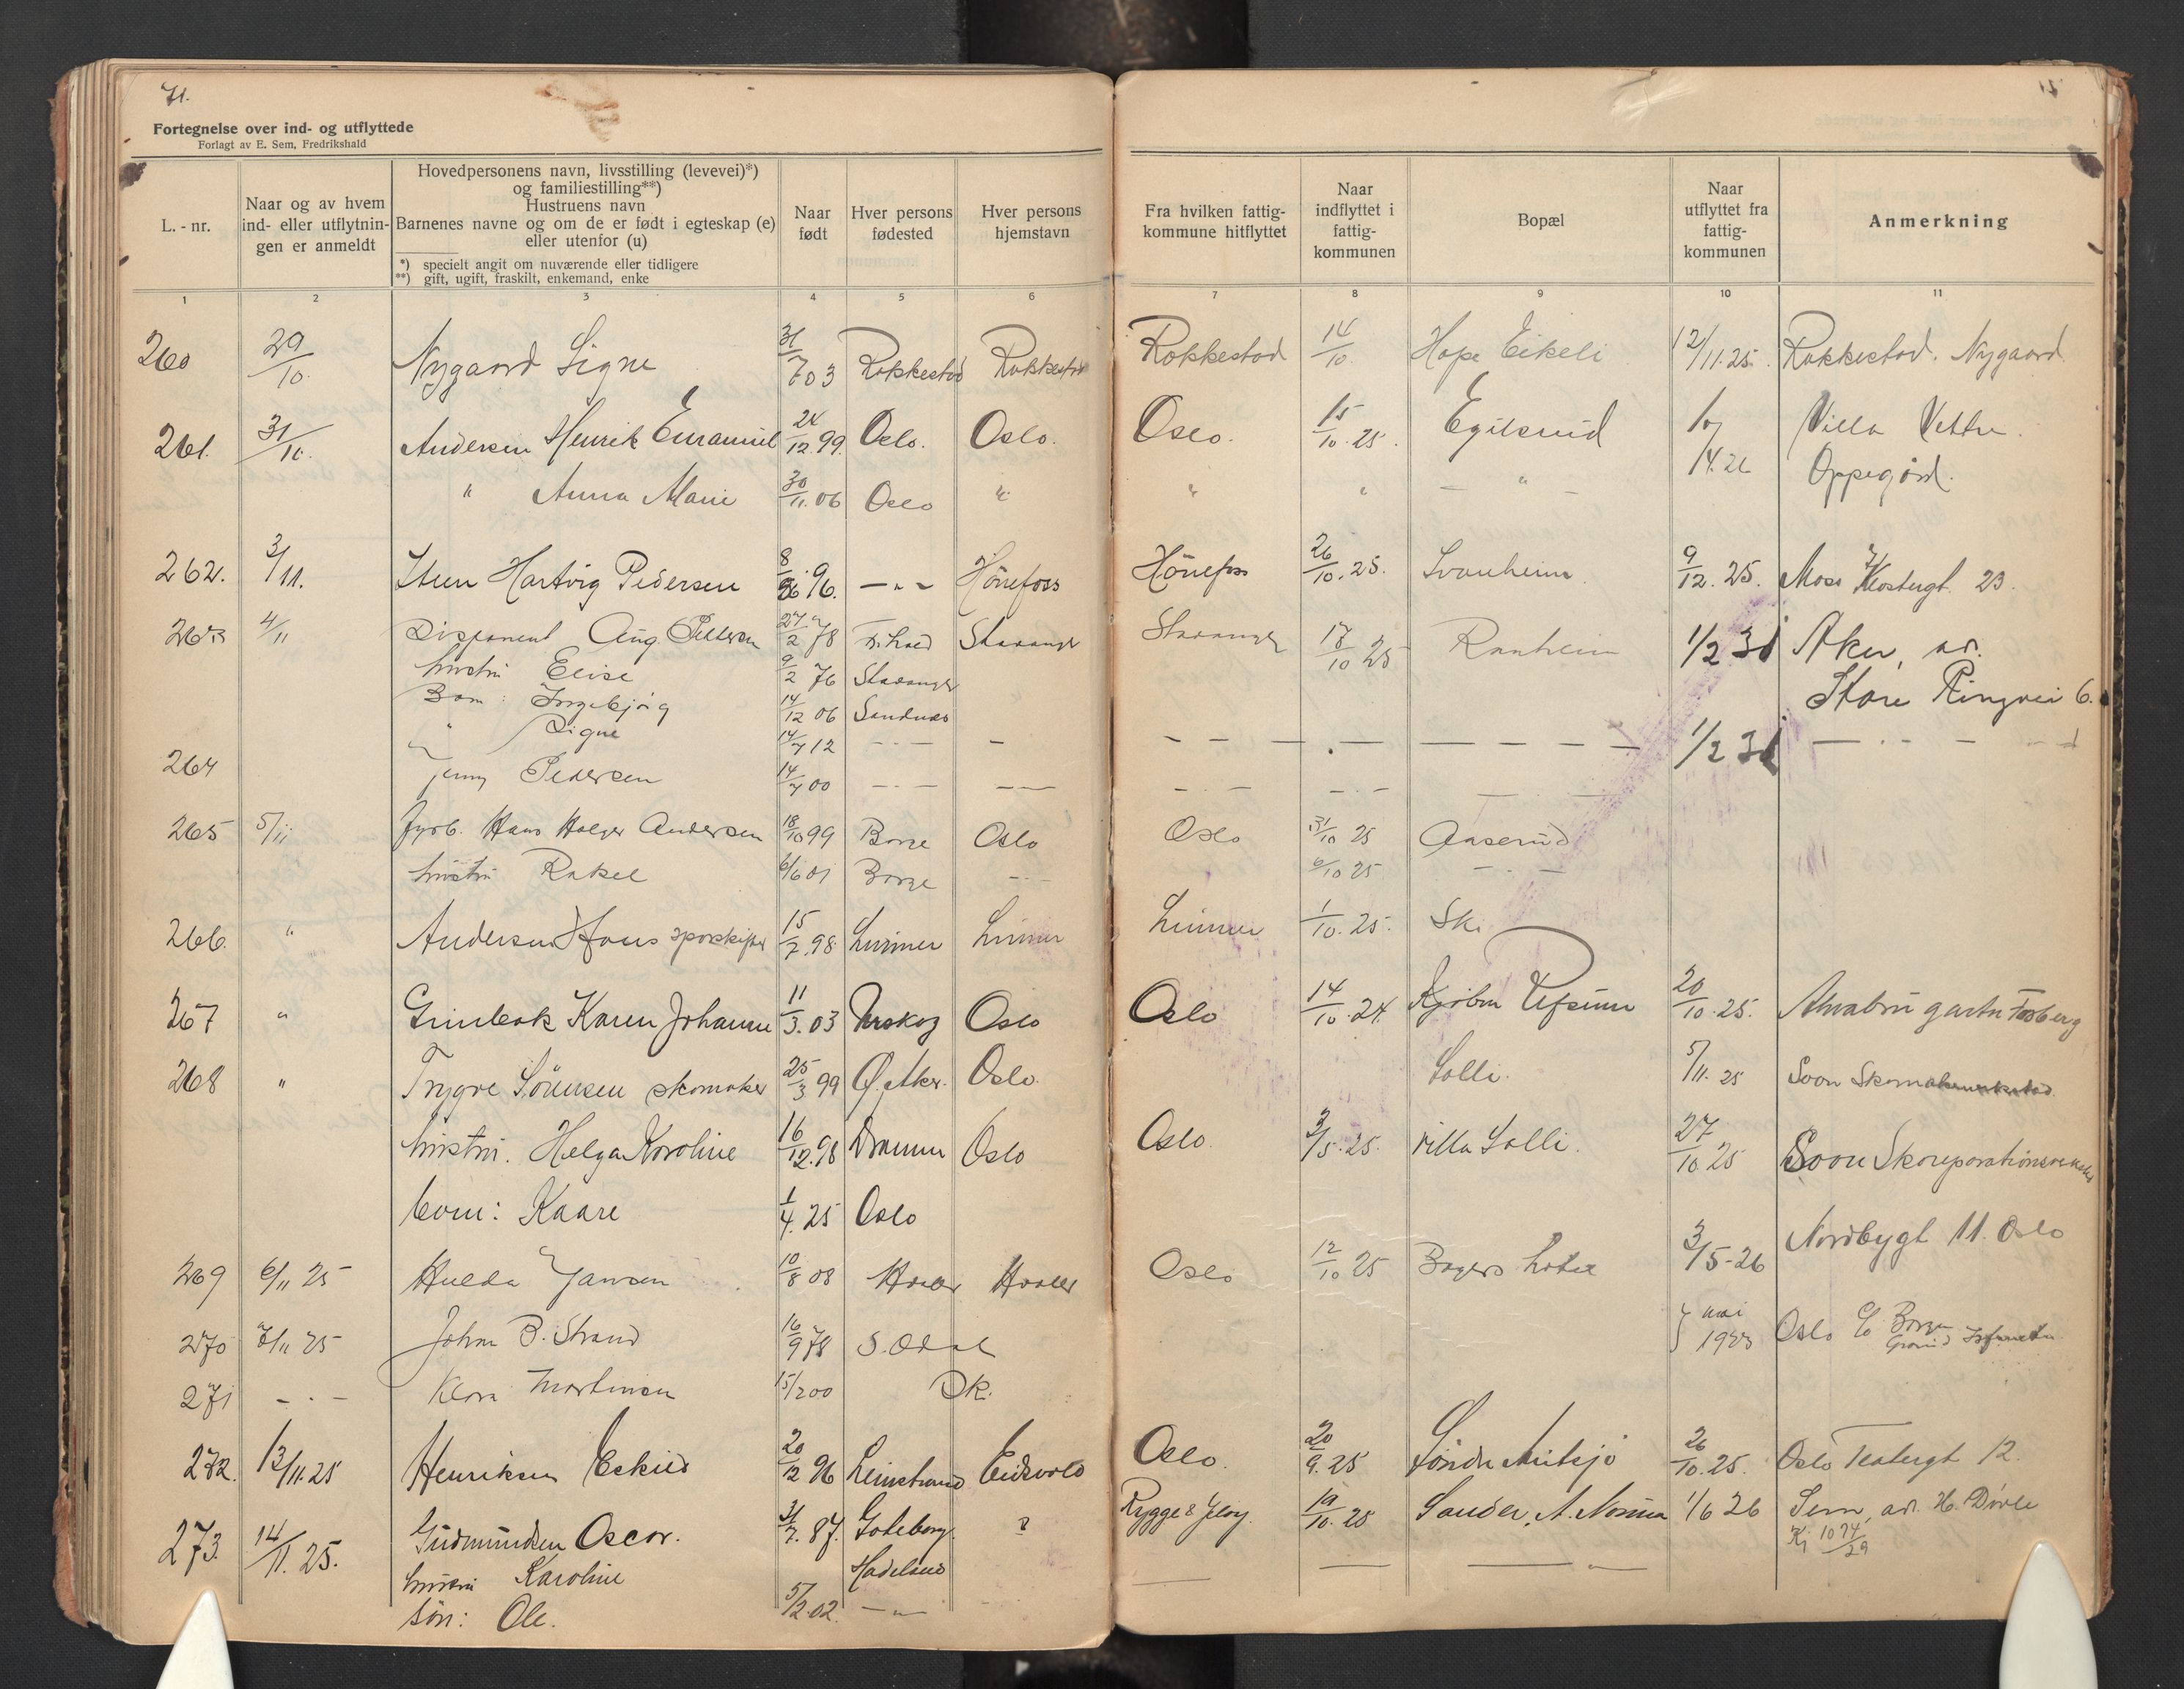 71.
Fortegnelse over ind- og utflyttede
Forlagt av E. Sem, Fredrikshald
L. - nr.
Naar og av hvem ind- eller utflytnin- gen er anmeldt
Hovedpersonens navn, livsstilling (levevei)*)
og familiestilling**)
Hustruens navn
Barnenes navne og om de er født i egteskap (e)
eller utenfor (u)
*) specielt angit om nuværende eller tidligere
**) gift, ugift, fraskilt, enkemand, enke
Naar født
Hver persons fødested
Hver persons hjemstavn
Fra hvilken fattig- kommune hitflyttet
Naar indflyttet i fattig- kommunen
Bopæl
Naar utflyttet fra fattig- kommunen
Anmerkning
1 2 3 4 5 6 7 8 9 10 11
260 29/10. Nygaard Signe 31/7 03 Rakkestad Rakkestad Rakkestad 14/10. Hope Eikeli 12/11.25. Rakkestad. Nygaard
261. 31/10. Andersen Henrik Emanuel 24/12.99. Oslo. Oslo. Oslo. 15/10.25. Egilsrud Villa Vettre.
" Anna Marie 30/11.06 Oslo " " " — " — 14.26 Oppegård.
262. 3/11. Hartvig Pedersen 8/9 96. — " — Hönefoss Hönefoss 26/10.25. Svanheim 9/12.25. Moss Klostergt. 23.
263 4/11 Disponent Aug Pettersen 27/2 78 Fr.hald Stavanger Stavanger 17/10 25 Ranheim 1/2 31 Aker, adr.
hustru Elise 9/2 76 Stavanger Store Ringvei 6.
Barn: Ingebjørg 14/12 06 Sandnes
" Signe 14/7 12 — " — — 1/2 31
264 Jenny Pedersen 14/7 00 — " — — — — " — — " — — " —
265 5/11 Fyrb. Hans Holger Andersen 18/10 99 Borge Oslo Oslo 31/10 25 Aaserud
hustru Rakel 6/6 01 Borge — " — 6/10 25 — " —
266. " Andersen Hans sporskifter 15/2.98. Lunner Lunner Lunner 1/10.25. Ski
267 " Karen Johanne 11/3.03 Urskog Oslo Oslo 14/10.24. Kjøbm Ufsum 20/10.25. Alnabru gartn Fosberg
268 " Trygve Sörensen skomaker 25/3 99 Ø. Aker. Oslo. Solli. 5/11.25 Soon Skomakerverksted
hustru. Helga Karoline 16/12.98 Drammen Oslo Oslo 3/5.25. Villa Solli. 27/10 25 Soon
barn: Kaare 1/4.25 Oslo
269 6/11 25 Hulda Jansen 10/8 08 Hvaler Hvaler Oslo 12/10 25 Bøgers hotel 3/5-26 Nordbygt 11. Oslo
270 7/11 25 Johan B. Strand 16/9 78 S. Odal mai 1933 Oslo c/o Borgen
271 — " — Klara Martinsen 15/2 00 Dk.
272. 13/11.25 Henriksen Eskild 20/12 96 Leinstrand Eidsvold Oslo. 20/9.25 Söndre Mitsjø 26/10.25. Oslo Teatergt 12.
273. 14/11.25. Gudmundsen Oscar. 31/7.87. Göteborg. ? Rygge & Jeløy. 19/10.25 Sander, A. Norum 1/6 26 Sem, adr. H. Dövle
hustru Karoline Hadeland — — — " Kj 1074/29
sön: Ole. 5/2.02. — " —